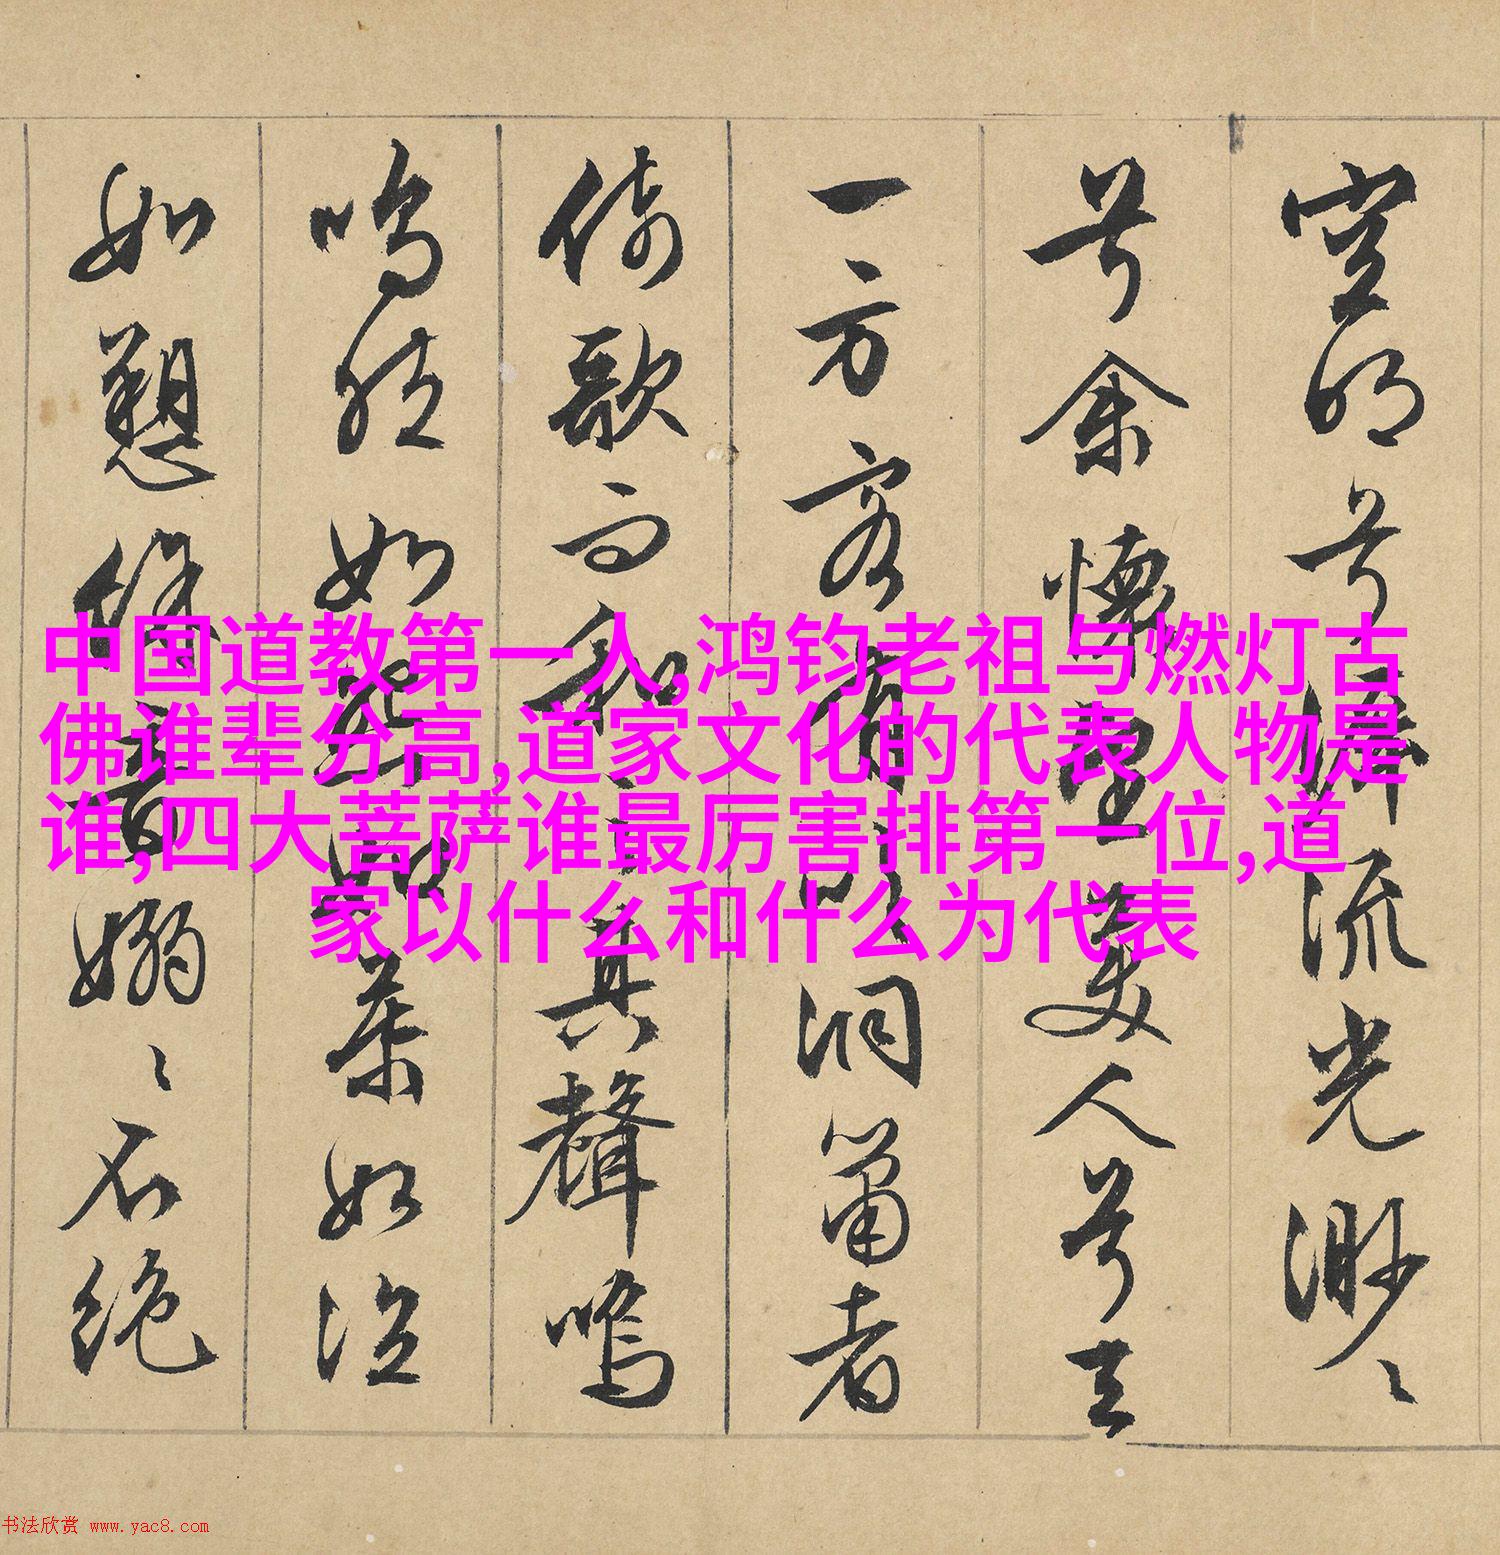 空明兮泝流光渺〻
兮余懷望美人兮天
一方客有吹洞簫者
倚歌而和之其聲嗚
嗚然如怨如慕如泣
如愬餘音嫋〻不絕
中国道教第一人,鸿钧老祖与燃灯古
佛谁辈分高,道家文化的代表人物是
谁,四大菩萨谁最厉害排第一位,道
家以什么和什么为代表
书法欣赏 www.yac8.com